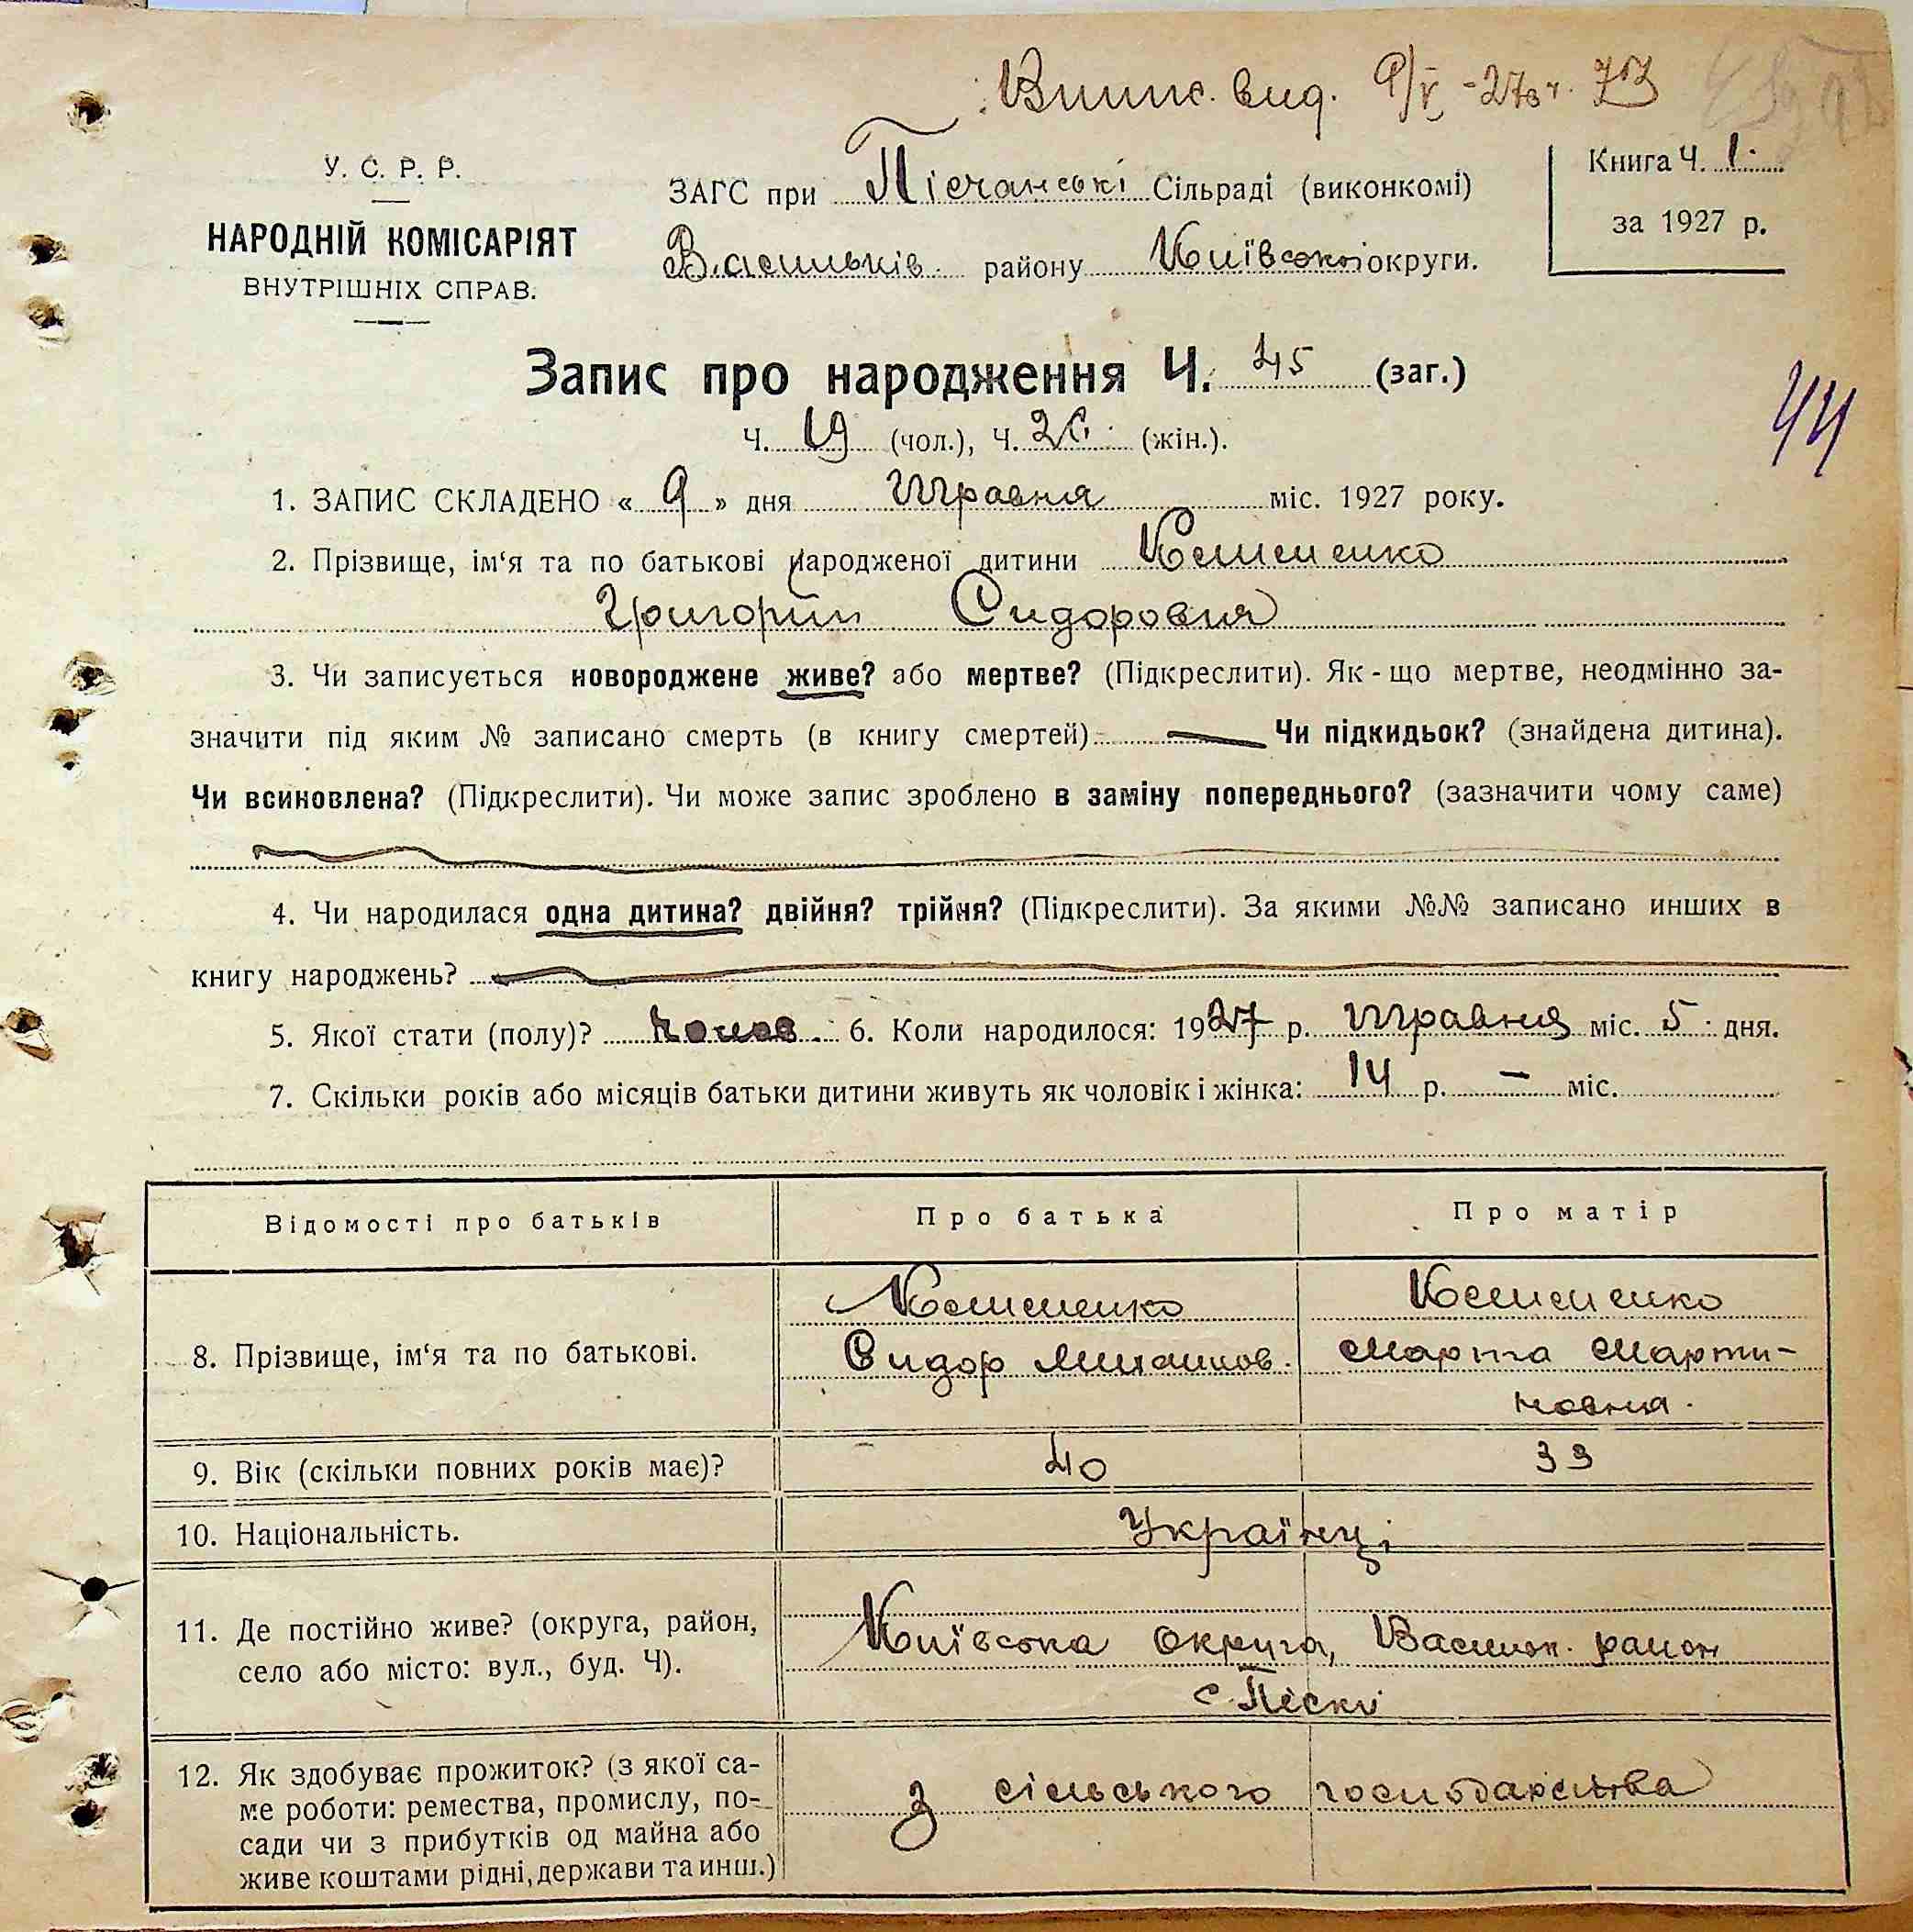 Випис. вид. 9/V -27 г.
У. С. Р. Р.
НАРОДНІЙ КОМІСАРІЯТ
ВНУТРІШНІХ СПРАВ.
ЗАГС при Пісчанські Сільраді (виконкомі)
Васильків. району Київської округи.
Книга Ч. 1.
за 1927 р.
Запис про народження Ч. 45 (заг.)
Ч. 19 (чол.), Ч. 26. (жін.).
44
1. ЗАПИС СКЛАДЕНО « 9 » дня Травня міс. 1927 року.
2. Прізвище, ім‘я та по батькові народженої дитини
Григорий Сидоровия
3. Чи записується новороджене живе? або мертве? (Підкреслити). Як-що мертве, неодмінно за-
значити під яким № записано смерть (в книгу смертей) — Чи підкидьок? (знайдена дитина).
Чи всиновлена? (Підкреслити). Чи може запис зроблено в заміну попереднього? (зазначити чому саме)
4. Чи народилася одна дитина? двійня? трійня? (Підкреслити). За якими №№ записано инших в
книгу народжень?
5. Якої стати (полу)? 6. Коли народилося: 1927 р. Травня міс. 5 дня.
7. Скільки років або місяців батьки дитини живуть як чоловік і жінка: 14 р. — міс.
Відомості про батьків Про батька Про матір
8. Прізвище, ім‘я та по батькові.
Сидор Михайлов. Марта Марти-
новна.
9. Вік (скільки повних років має)? 40 33
10. Національність. Українці
11. Де постійно живе? (округа, район,
село або місто: вул., буд. Ч).
Київська округа, Васильк. район
с. Піски
12. Як здобуває прожиток? (з якої са-
ме роботи: ремества, промислу, по-
сади чи з прибутків од майна або
живе коштами рідні, держави та инш.)
з сільського господарства